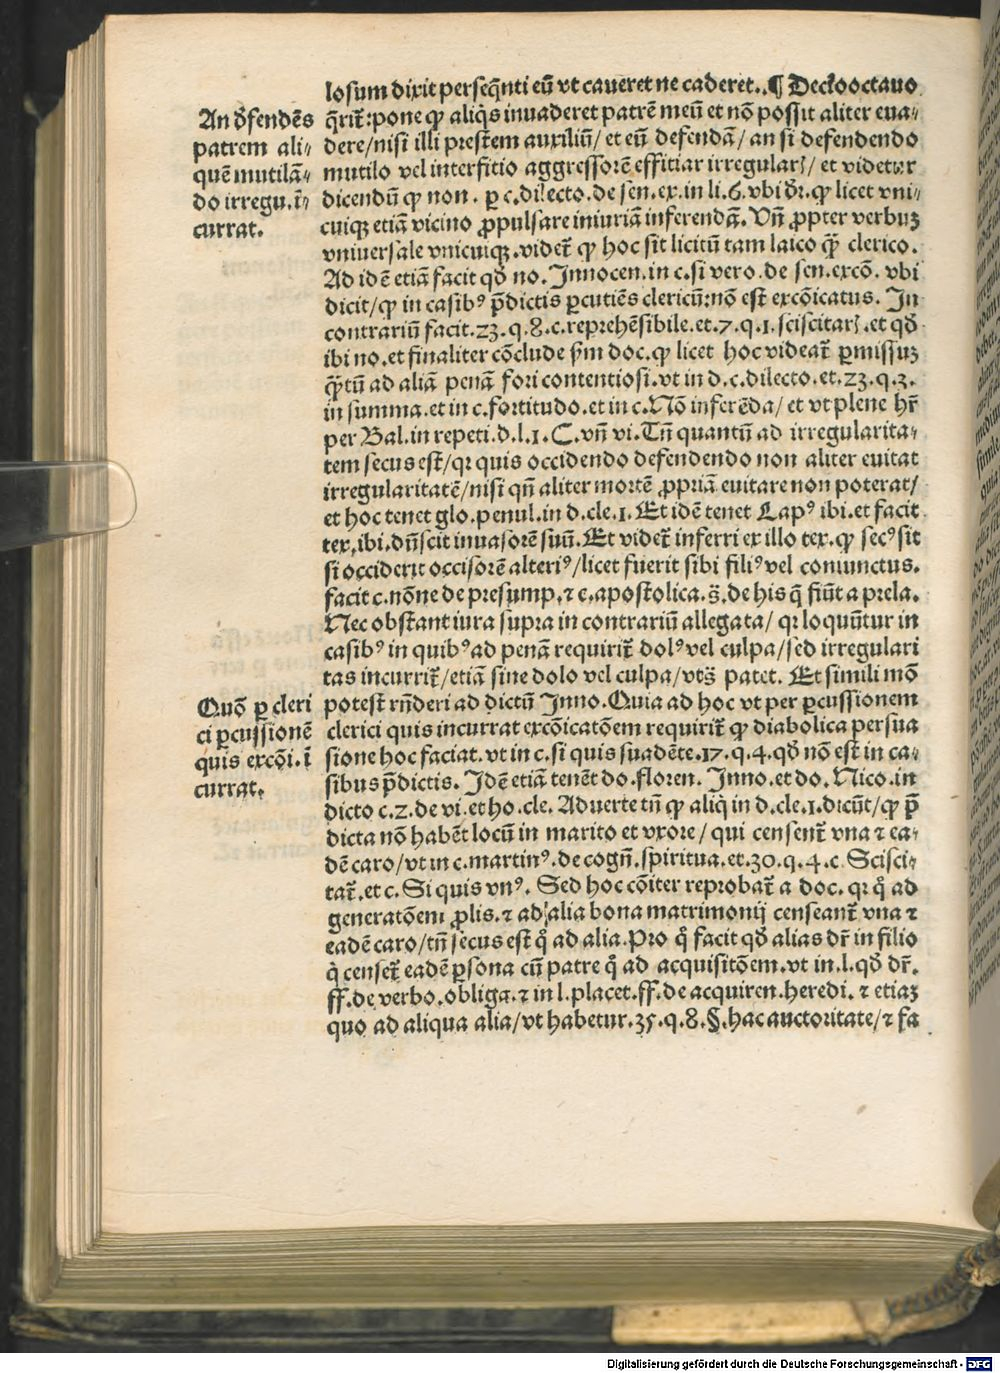 losum dixit perseq̄nti eū vt caueret ne caderet. ¶ Decīooctauo
An ꝺ̄fendēs
patrem ali⸗
quē mutilā⸗
do irregu. ī⸗
currat.
q̄rit̄: pone ꝙ aliq̇s inuaderet patrē meū et nō possit aliter eua⸗
dere/ nisi illi prestem auxiliū/ et eū defendā/ an si defendendo
mutilo vel interfitio aggressorē effitiar irregularꝭ/ et videtur
dicendū ꝙ non. ꝑ c. dilecto. de sen. ex. in li. 6. vbi dr̄. ꝙ licet vni⸗
cuiqꝫ etiā vicino ꝓpulsare iniuriā inferendā. Vn̄ ꝓpter verbuꝫ
vniuersale vnicuiqꝫ. videt̄ ꝙ hoc sit licitū tam laico qꝫ̄ clerico.
Ad idē etiā facit qꝺ no. Innocen. in c. si vero. de sen. excō. vbi
dicit/ ꝙ in casibꝰ p̄dictis ꝑcutiēs clericū: nō est excōicatus. In
contrariū facit. 23. q. 8. c. reprehēsibile. et. 7. q. 1. sciscitarꝭ. et qꝺ
ibi no. et finaliter cōclude ẜm doc. ꝙ licet hoc videat̄ ꝑmissuꝫ
qꝫ̄tū ad aliā penā fori contentiosi. vt in d. c. dilecto. et. 23. q. 3.
in summa. et in c. fortitudo. et in c. Nō inferēda/ et vt plene hr̄
per Bal. in repeti. d. l. 1. C. vn̄ vi. Tn̄ quantū ad irregularita⸗
tem secus est/ qꝛ quis occidendo defendendo non aliter euitat
irregularitatē/ nisi qn̄ aliter mortē ꝓpriā euitare non poterat/
et hoc tenet glo. penul. in d. cle. 1. Et idē tenet Lapꝰ ibi. et facit
tex. ibi. dū scit inuasorē suū. Et videt̄ inferri ex illo tex. ꝙ secꝰ sit
si occiderit occisorē alteriꝰ/ licet fuerit sibi filiꝰ vel coniunctus.
facit c. nōne de presump. ⁊ c. apostolica. s̄. de his q̄ fiūt a prela.
Nec obstant iura supra in contrariū allegata/ qꝛ loquūtur in
casibꝰ in quibꝰ ad penā requirit̄ dolꝰ vel culpa/ sed irregulari
tas incurrit̄/ etiā sine dolo vel culpa/ vt s̄ patet. Et simili mō
Quō ꝑ cleri
ci ꝑcussionē
quis excōi. ī
currat.
potest rn̄deri ad dictū Inno. Quia ad hoc vt per ꝑcussionem
clerici quis incurrat excōicatōem requirit̄ ꝙ diabolica persua
sione hoc faciat. vt in c. si quis suadēte. 17. q. 4. qꝺ nō est in ca⸗
sibus p̄dictis. Idē etiā tenēt do. floren. Inno. et do. Nico. in
dicto c. 2. de vi. et ho. cle. Aduerte tn̄ ꝙ aliq̇ in d. cle. 1. dicūt/ ꝙ p̄
dicta nō habēt locū in marito et vxore/ qui censent̄ vna ⁊ ea⸗
dē caro/ vt in c. martinꝰ. de cogn̄. spiritua. et. 30. q. 4. c. Scisci⸗
tat̄. et c. Si quis vnꝰ. Sed hoc cōiter reprobat̄ a doc. qꝛ qͦ ad
generatōem ꝓlis. ⁊ ad alia bona matrimonij censeant̄ vna ⁊
eadē caro/ tn̄ secus est qͦ ad alia. Pro qͦ facit qꝺ alias dr̄ in filio
q̇ censet̄ eadē ꝑsona cū patre qͦ ad acquisitōem. vt in. l. qꝺ dr̄.
ff. de verbo. obliga. ⁊ in l. placet. ff. de acquiren. heredi. ⁊ etiaꝫ
quo ad aliqua alia/ vt habetur. 35. q. 8. §. hac auctoritate/ ⁊ fa
Digitalisierung gefördert durch die Deutsche Forschungsgemeinschaft - DFG